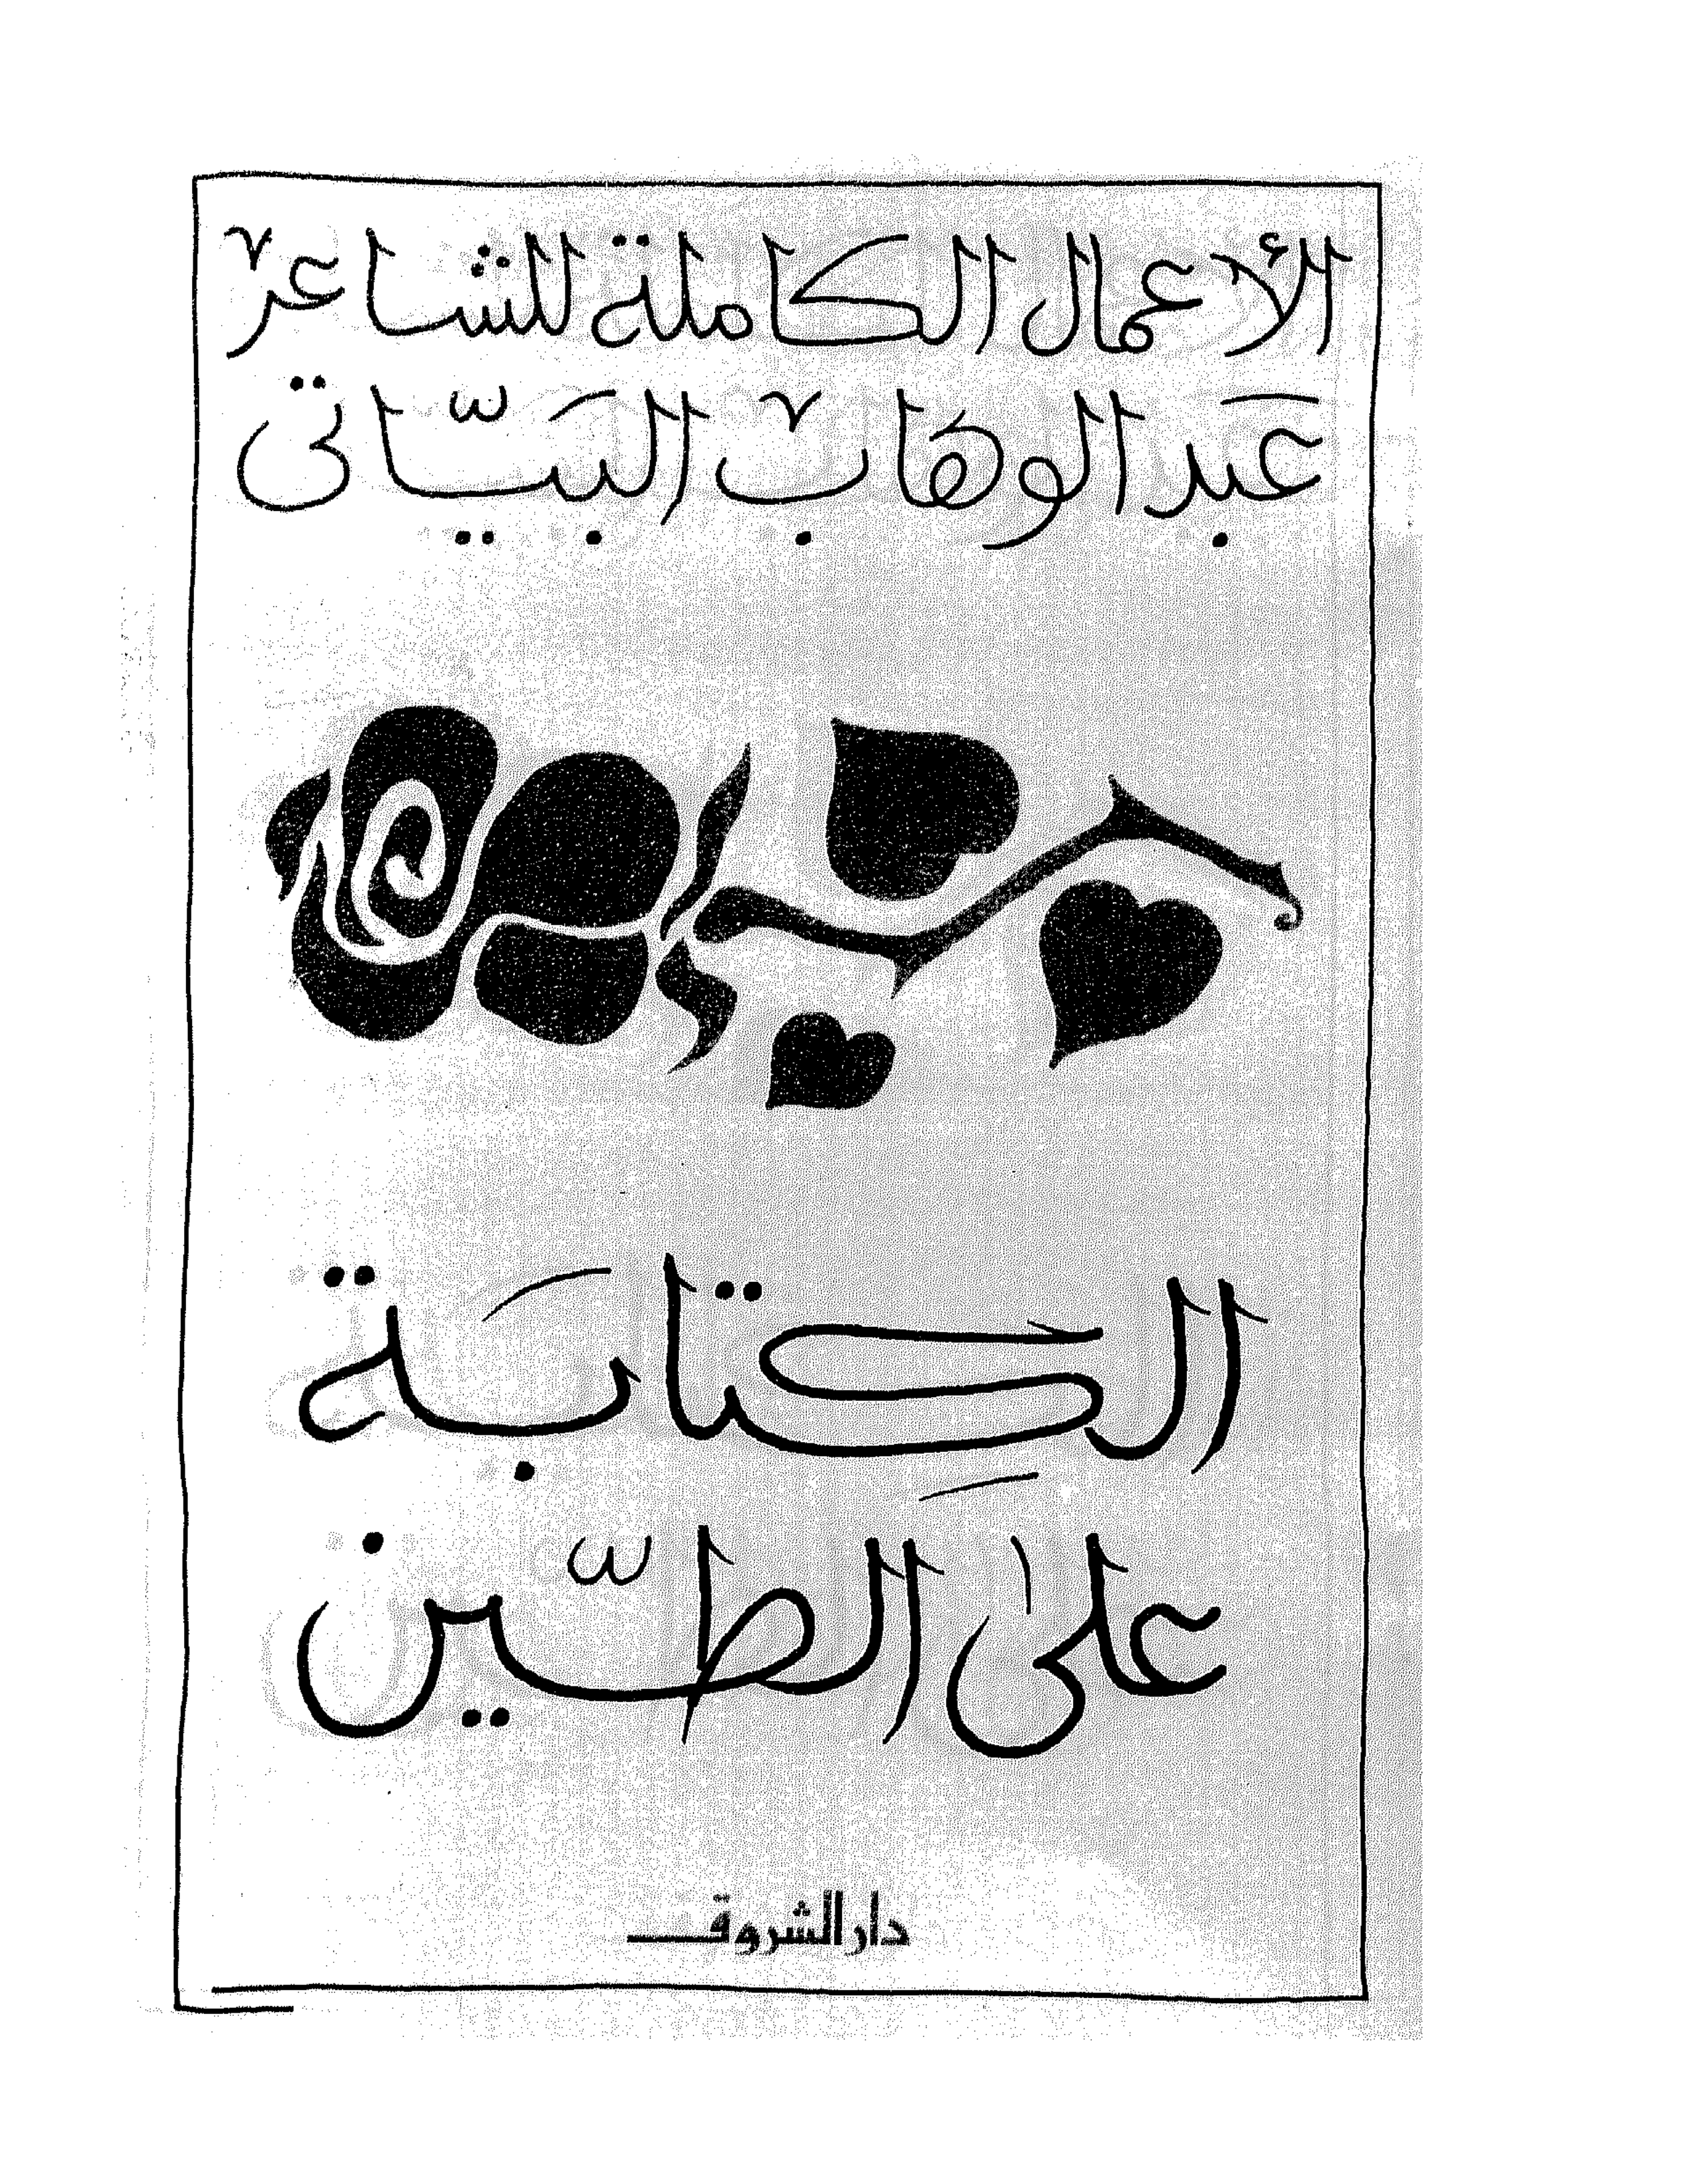 الأعمال الكاملة للشاعر
عبد الوهاب البَيّاتى
الكِتابَة
على الطّين
دار الشروق